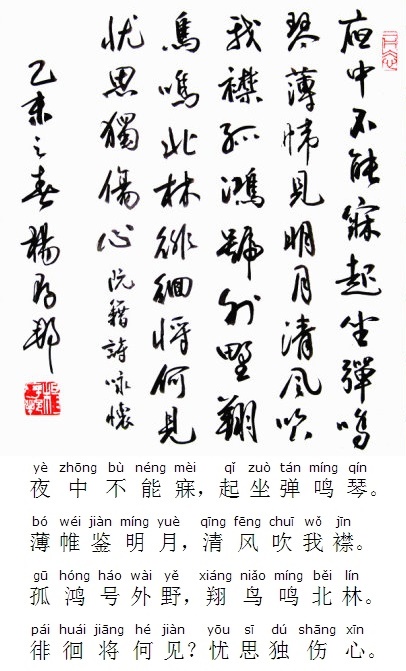 夜中不能寐起坐彈鳴
琴薄帷見明月清風吹
我襟孤鴻號外野翔
鳥鳴北林徘徊将何見
忧思獨傷心 阮籍詩咏懷
乙未之春楊
yè zhōng bù néng mèi qǐ zuò tán míng qín
夜中不能寐，起坐弹鸣琴。
bó wéi jiàn míng yuè qīng fēng chuī wǒ jīn
薄帷鉴明月，清风吹我襟。
gū hóng háo wài yě xiáng niǎo míng běi lín
孤鸿号外野，翔鸟鸣北林。
pái huái jiāng hé jiàn yōu sī dú shāng xīn
徘徊将何见？忧思独伤心。